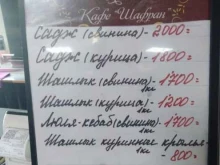 Кафе Шафран
Садж (свинина) - 2000=
Садж (курица) - 1800=
Шашлык (свинина) - 1700=
1кг
Шашлык (курица) - 1200=
1кг
Люля-кебаб (свинина) - 1700=
1кг
Шашлык куринные крылья -
1кг - 800=